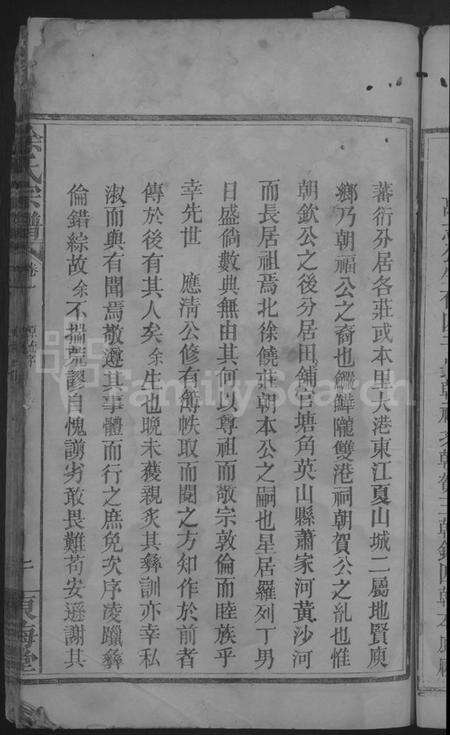 蕃衍分居各莊或本里大港東江夏山城二屬地賢庾
鄉乃朝福公之裔也鰥鱓隴雙港祠朝賀公之胤也惟
朝欽公之後分居田鋪呂塘角英山縣蕭家河黃沙河
而長居祖焉北徐饒莊朝本公之嗣也星居羅列丁男
日盛倘數典無由其何以尊祖而敬宗敦倫而睦族乎
幸先世 應清公修有簿帙取而閱之方知作於前者
傳於後有其人矣余生也晚未獲親炙其彝訓亦幸私
淑而與有聞焉敬遵其事體而行之庶免次序凌躐彝
倫錯綜故余不揣荒謬自愧謭劣敢畏難苟安遜謝其
徐氏宗譜
卷一
東海堂
FamilySearch